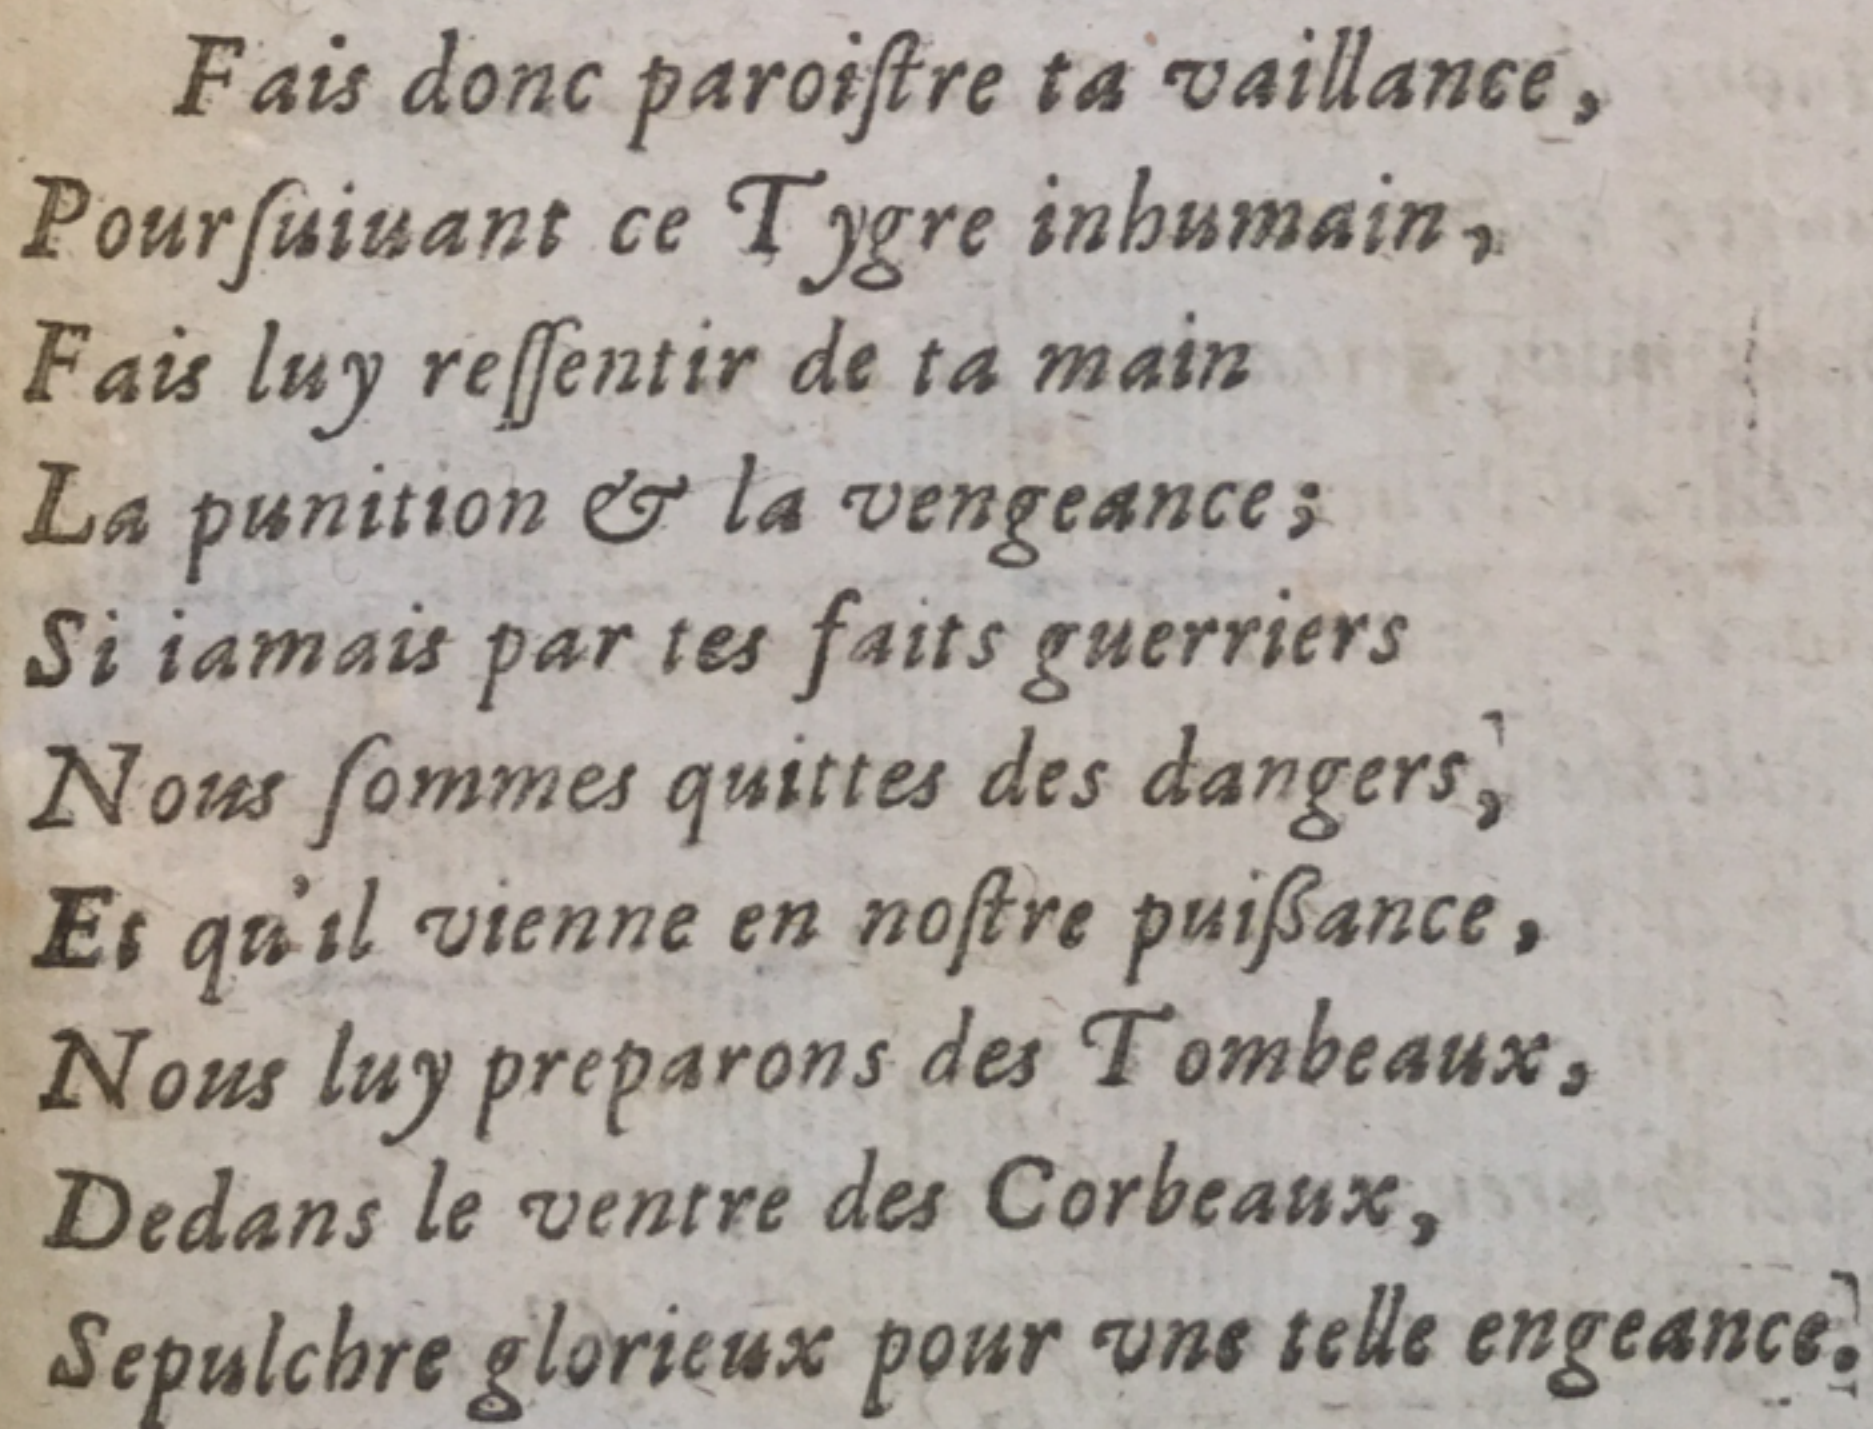 Fais donc paroiſtre ta vaillance,
Pourſuiuant ce Tygre inhumain,
Fais luy reſſentir de ta main
La punition & la vengeance;
Si iamais par tes faits guerriers
Nous ſommes quittes des dangers,
Et qu'il vienne en noſtre puißance,
Nous luy preparons des Tombeaux,
Dedans le ventre des Corbeaux,
Sepulchre glorieux pour vne telle engeance.